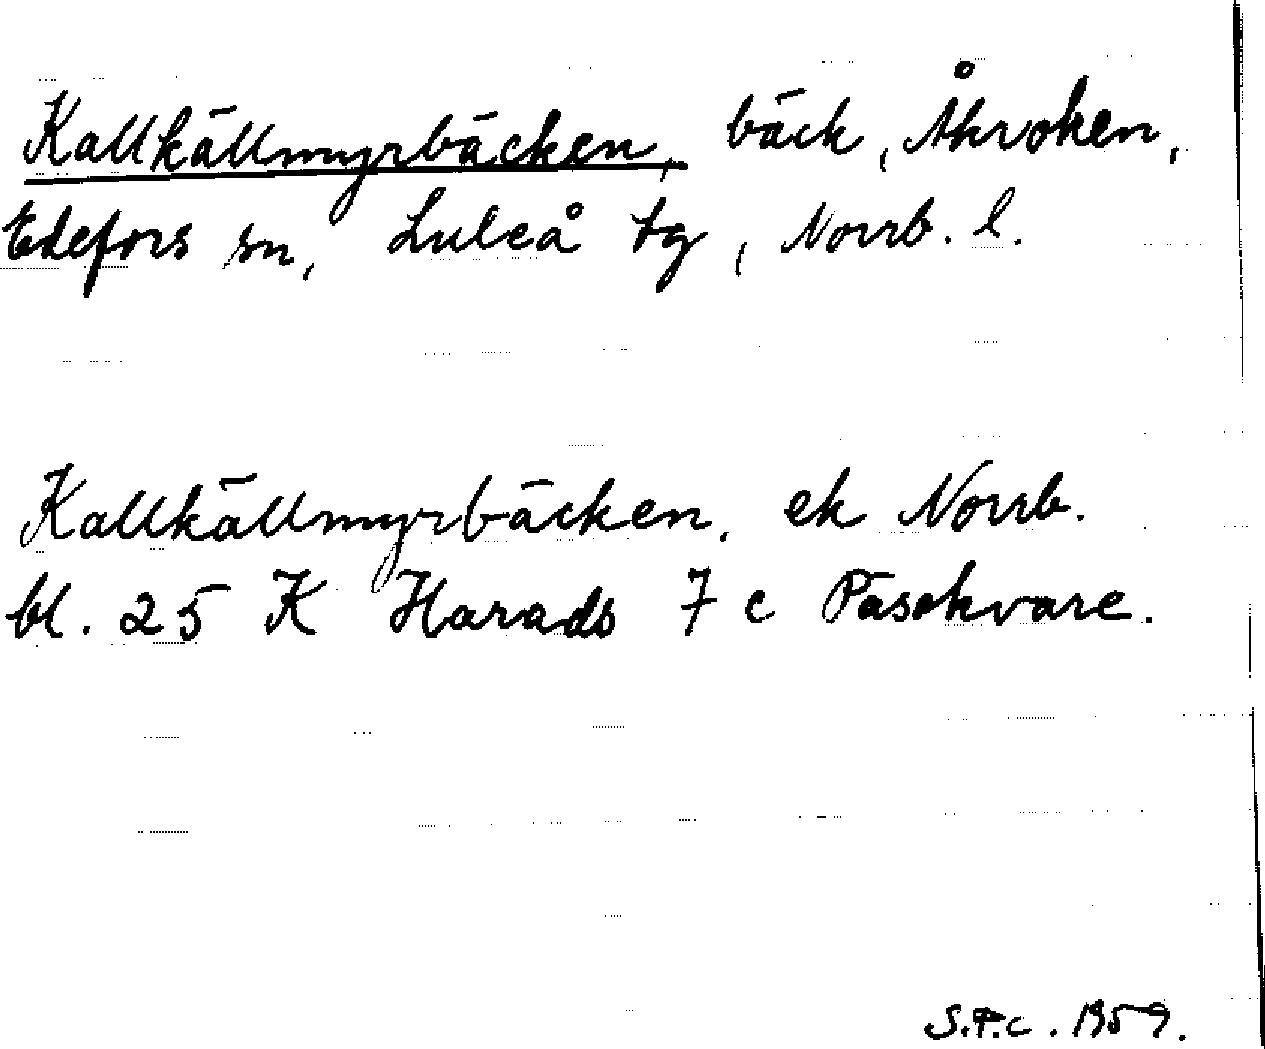 Kallkällmyrbäcken, bäck, Åkroken,
Edefors sn, Luleå tg, Norrb. l.
Kallkällmyrbäcken, ek Norrb.
bl. 25 K Harads 7 c Päsokvare.
S.P.C. 1959.